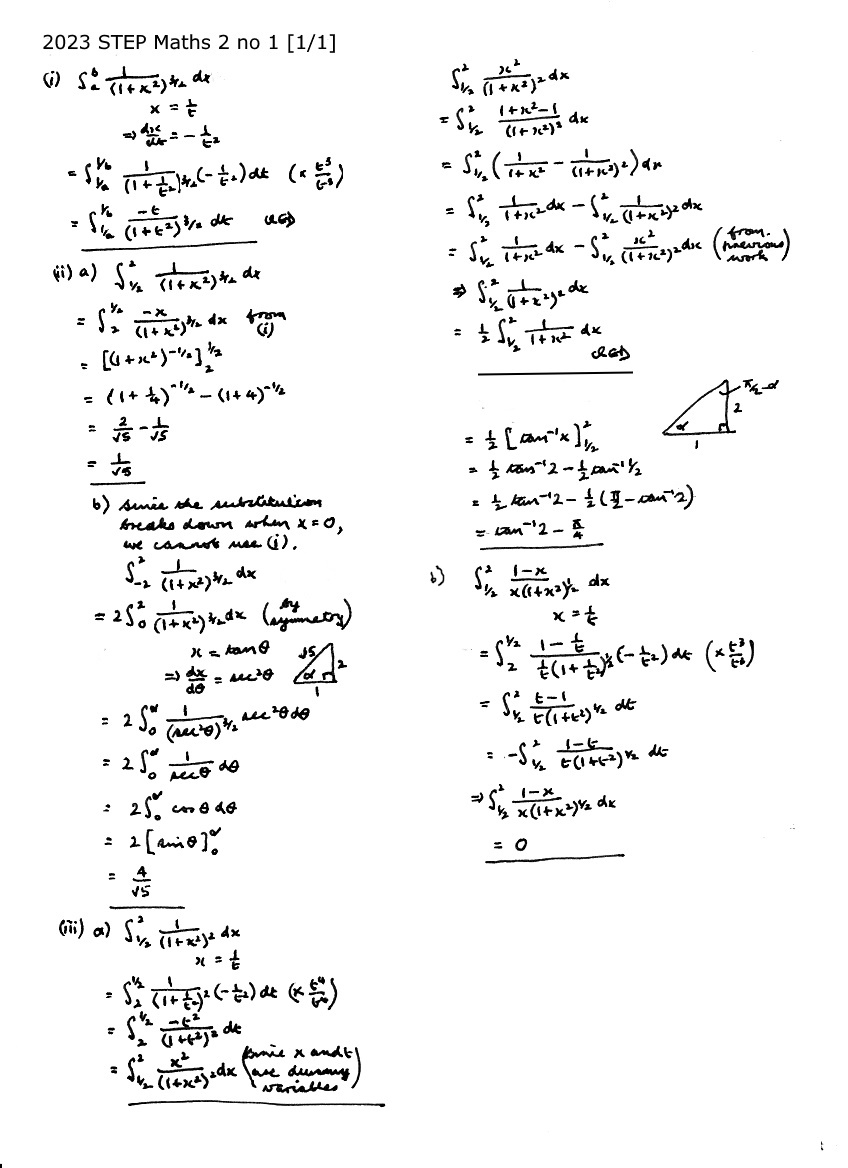 2023 STEP Maths 2 no 1 [1/1]
(i) ∫_a^b 1/(1+x²)^{3/2} dx
x = 1/t
⇒ dx/dt = -1/t²
= ∫_{1/a}^{1/b} 1/(1+1/t²)^{3/2} (-1/t²) dt (× t³/t³)
= ∫_{1/a}^{1/b} -t/(1+t²)^{3/2} dt QED
(ii) a) ∫_{1/2}^2 1/(1+x²)^{3/2} dx
= ∫_2^{1/2} -x/(1+x²)^{3/2} dx from (i)
= [(1+x²)^{-1/2}]_2^{1/2}
= (1+1/4)^{-1/2} - (1+4)^{-1/2}
= 2/√5 - 1/√5
= 1/√5
b) Since the substitution
breaks down when x=0,
we cannot use (i).
∫_{-2}^2 1/(1+x²)^{3/2} dx
= 2∫_0^2 1/(1+x²)^{3/2} dx (by symmetry)
x = tanθ
⇒ dx/dθ = sec²θ
√5 2 α 1
= 2∫_0^α 1/(sec²θ)^{3/2} sec²θ dθ
= 2∫_0^α 1/secθ dθ
= 2∫_0^α cosθ dθ
= 2[sinθ]_0^α
= 4/√5
(iii) a) ∫_{1/2}^2 1/(1+x²)² dx
x = 1/t
= ∫_2^{1/2} 1/(1+1/t²)² (-1/t²) dt (× t⁴/t⁴)
= ∫_2^{1/2} -t²/(1+t²)² dt
= ∫_{1/2}^2 x²/(1+x²)² dx (since x and t are dummy variables)
∫_{1/2}^2 x²/(1+x²)² dx
= ∫_{1/2}^2 1+x²-1/(1+x²)² dx
= ∫_{1/2}^2 (1/(1+x²) - 1/(1+x²)²) dx
= ∫_{1/2}^2 1/(1+x²) dx - ∫_{1/2}^2 1/(1+x²)² dx
= ∫_{1/2}^2 1/(1+x²) dx - ∫_{1/2}^2 x²/(1+x²)² dx (from previous work)
⇒ ∫_{1/2}^2 1/(1+x²)² dx
= 1/2 ∫_{1/2}^2 1/(1+x²) dx
QED
π/2-α 2 α 1
= 1/2 [tan⁻¹x]_{1/2}^2
= 1/2 tan⁻¹2 - 1/2 tan⁻¹1/2
= 1/2 tan⁻¹2 - 1/2(π/2 - tan⁻¹2)
= tan⁻¹2 - π/4
b) ∫_{1/2}^2 1-x/x(1+x²)^{1/2} dx
x = 1/t
= ∫_2^{1/2} 1-1/t / 1/t(1+1/t²)^{1/2} (-1/t²) dt (× t³/t³)
= ∫_{1/2}^2 t-1/t(1+t²)^{1/2} dt
= -∫_{1/2}^2 1-t/t(1+t²)^{1/2} dt
⇒ ∫_{1/2}^2 1-x/x(1+x²)^{1/2} dx
= 0